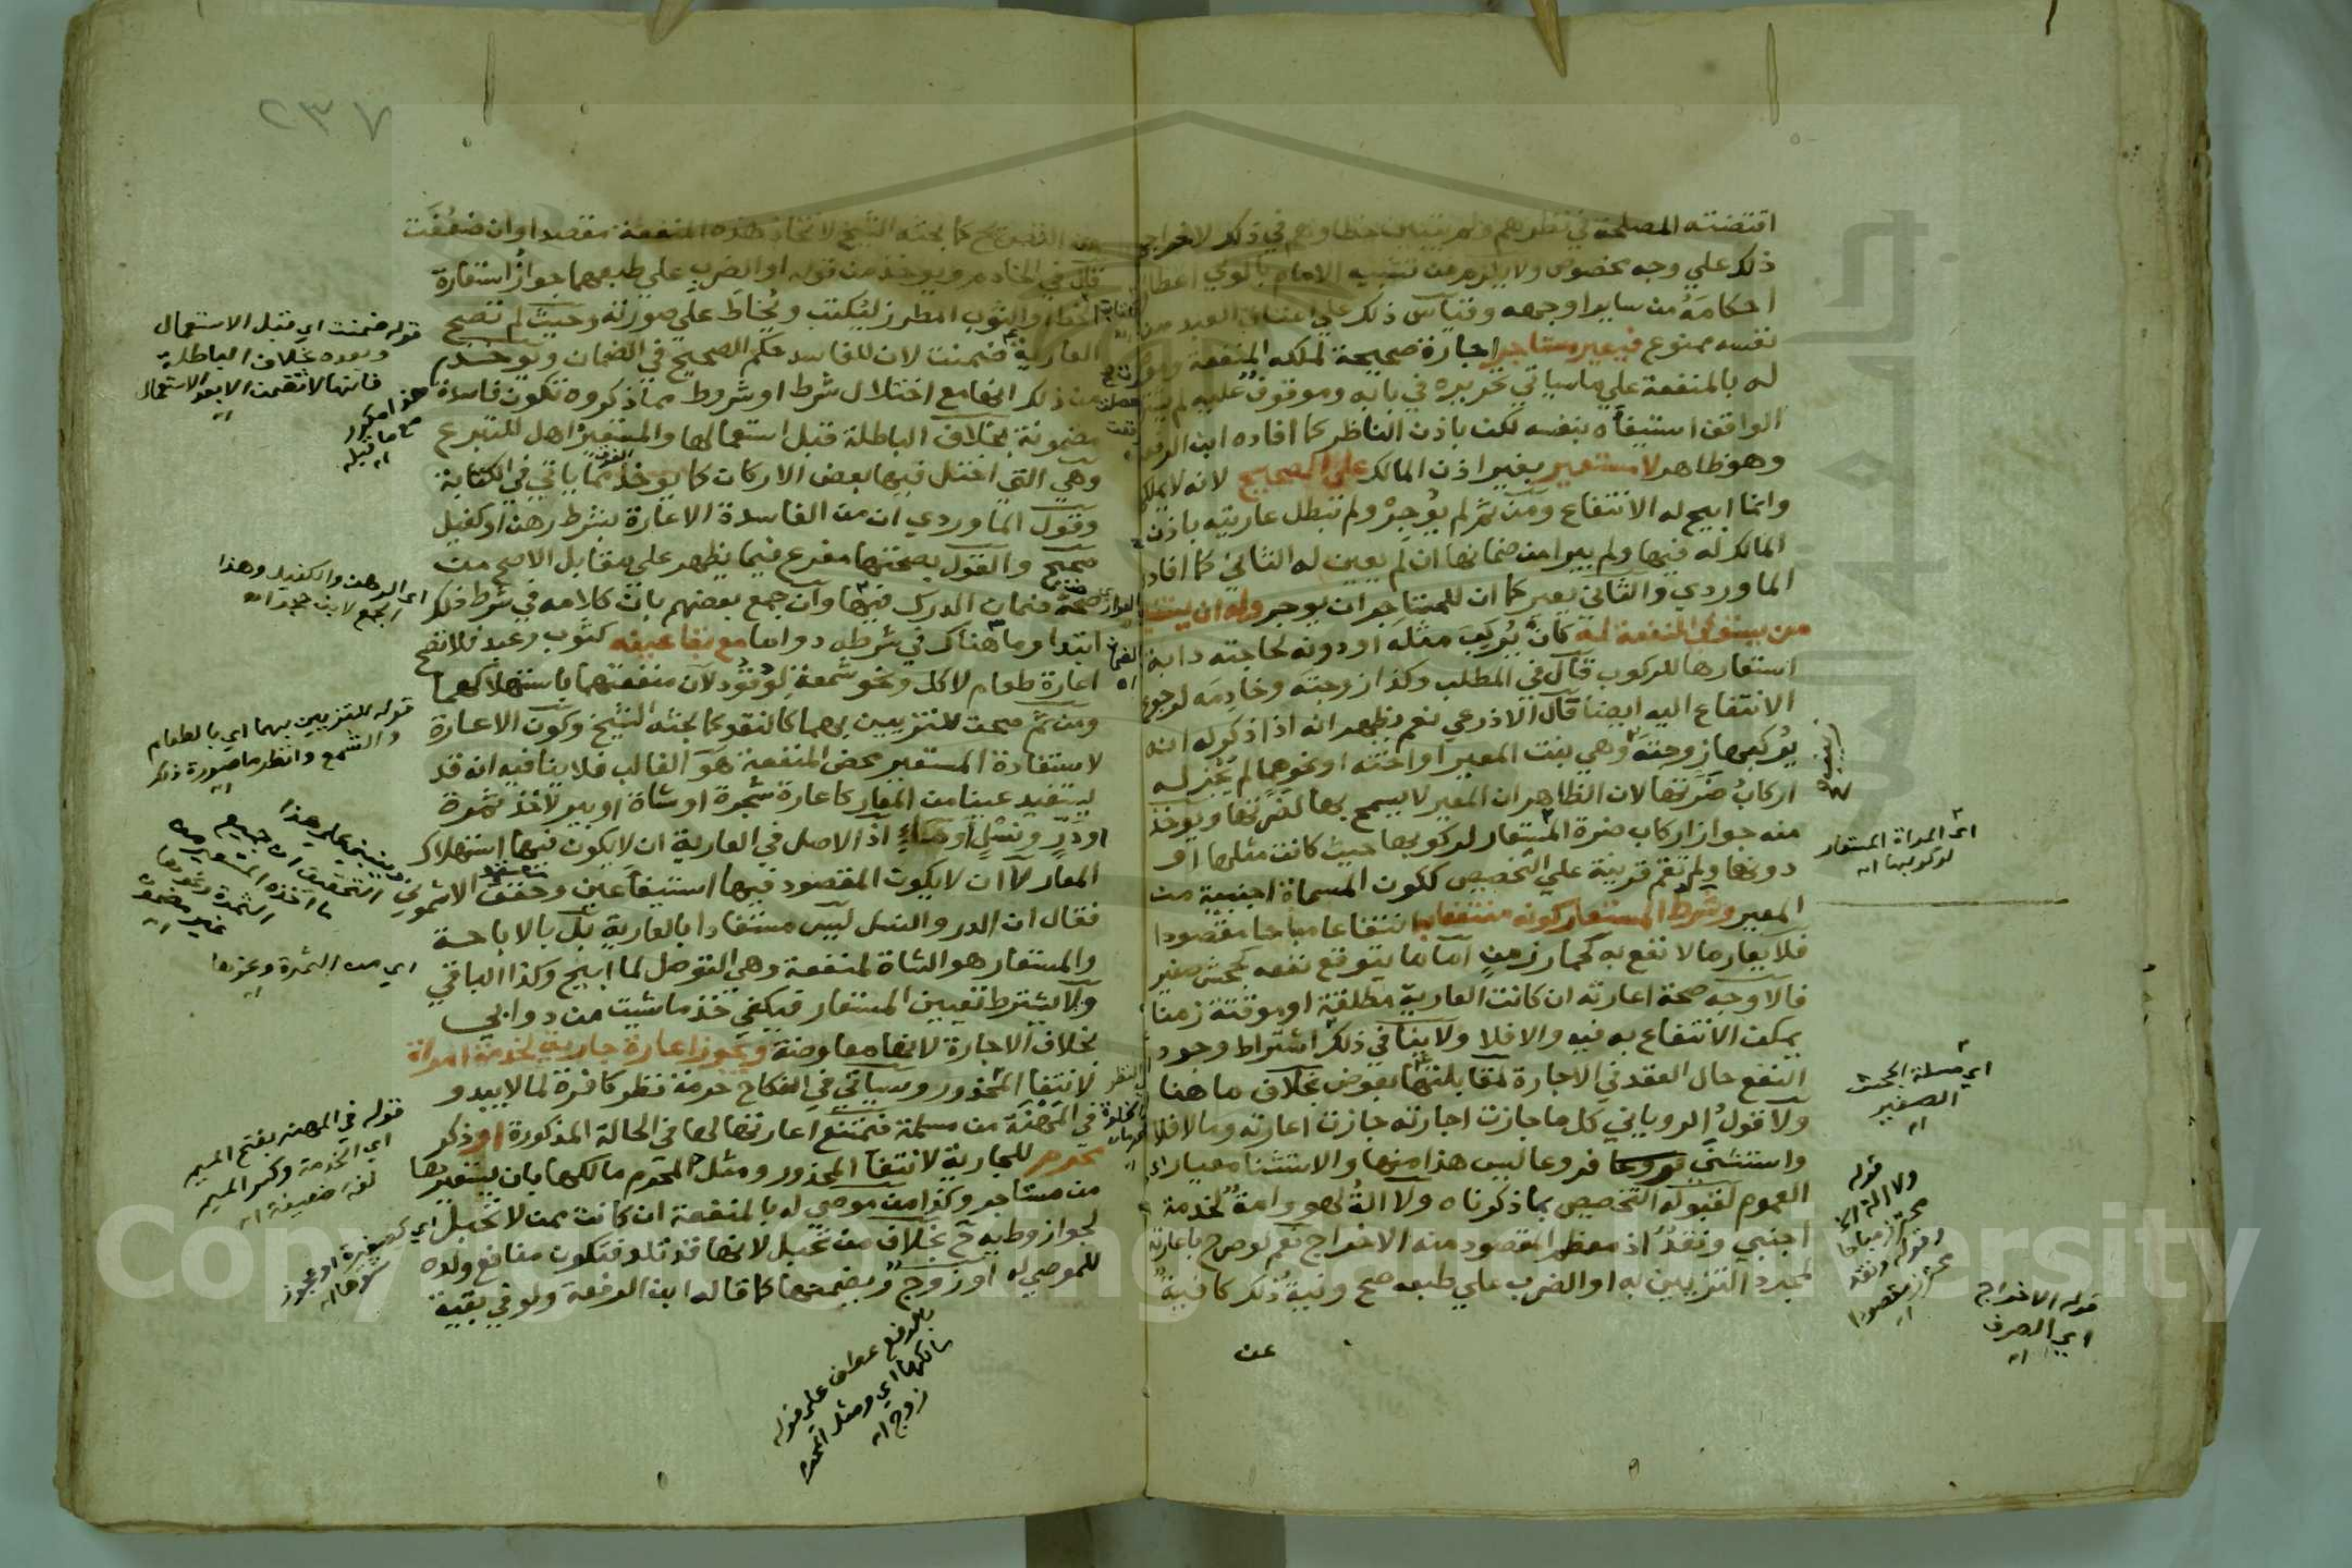 اقتضته المصلحة في نظرهم
ذلك علي وجه مخصوص ولا يلزم من تشبيه الامام بالولي اعطا
احكامه من ساير اوجهه وقياس ذلك علي اعتاق العبد من
نفسه ممنوع فيعير مستاجر اجارة صحيحة لملكه المنفعة
له بالمنفعة علي ما سياتي تحريره في بابه وموقوف عليه لم
الواقف استيفآه بنفسه لكن باذن الناظر كما افاده ابن الرفعة
وهو ظاهر لا مستعير بغير اذن المالك علي الصحيح لانه لا يملك
وانما ابيح له الانتفاع ومن ثم لم يوجر ولم تبطل عاريته باذن
المالك له فيها ولم يبرا من ضمانها ان لم يعين له الثاني كما افاده
الماوردي والثاني يعير كما ان للمستاجر ان يوجر وله ان
من يستوفي المنفعة له كان يركب مثله او دونه لحاجته دابة
استعارها للركوب قال في المطلب وكذا زوجته وخادمه لرجوع
الانتفاع اليه ايضا قال الاذرعي نعم يظهر انه اذا ذكر له انه
يركبها زوجته وهي بنت المعير او اخته او نحوهما لم يجز له
اركاب ضرتها لان الظاهر ان المعير لا يسمح بها لضرتها ويوخذ
منه جواز اركاب ضرة المستعار لركوبها حيث كانت مثلها او
دونها ولم تقم قرينة علي التخصيص ككون المسماة اجنبية من
المعير وشرط المستعار كونه منتفعا به انتفاعا مباحا مقصودا
فلا يعار ما لا نفع به كحمار زمن اما ما يتوقع نفعه كجحش صغير
فالاوجه صحة اعارته ان كانت العارية مطلقة او موقتة زمنا
يمكن الانتفاع به فيه والا فلا ولا ينافي ذلك اشتراط وجود
النفع حال العقد في الاجارة لمقابلتها بعوض بخلاف ما هنا
ولا قول الروياني كل ما جازت اجارته جازت اعارته وما لا فلا
واستثني فروعا ليس هذا منها والاستثنا معيار
العموم لقبوله التخصيص بما ذكرناه ولا الة لهو وامة لخدمة
اجنبي ونقد اذ معظم المقصود منه الاخراج نعم لو صرح باعارته
لمجرد التزيين به او الضرب علي طبعه صح ونية ذلك كافية
عن
اي المراة المستعار
لركوبها اه
اي مسلة الجحش
الصغير
اه
قوله
ولا الة الخ
محترز مباحا
وقوله ونقد
محترز مقصودا
اه
قوله الاخراج
اي الصرف
اه
كما بحثه الشيخ لاتخاذ هذه المنفعة مقصدا وان ضعفت
ويوخذ من قوله او الضرب علي طبعهما جواز استعارة
والثوب المطرز ليكتب ويخاط علي صورته وحيث لم تصح
العارية ضمنت لان للفاسد حكم الصحيح في الضمان ويوخذ
من ذلك انها مع اختلال شرط او شروط مما ذكروه تكون فاسدة
مضمونة بخلاف الباطلة قبل استعمالها والمستعير اهل للتبرع
وهي التي اختل فيها بعض الاركان كما يوخذ مما ياتي في الكتابة
وقول الماوردي ان من الفاسدة الاعارة بشرط رهن او كفيل
صحيح والقول بصحتها مفرع فيما يظهر علي مقابل الاصح من
صحة ضمان الدرك فيها وان جمع بعضهم بان كلامه في شرط ذلك
ابتدا وما هناك في شرطه دواما مع بقا عينه كثوب وعبد فلا تصح
اعارة طعام لاكل ونحو شمعة لوقود لان منفعتهما باستهلاكهما
ومن ثم صحت للتزيين بهما كالنقد كما بحثه الشيخ وكون الاعارة
لاستفادة المستعير محض المنفعة هو الغالب فلا ينافيه انه قد
يستفيد عينا من المعار كاعارة شجرة او شاة او بير لاخذ ثمرة
او در ونسل او ماء اذ الاصل في العارية ان لا يكون فيها استهلاك
المعار لا ان لا يكون المقصود فيها استيفآ عين وحقق الاشموني
فقال ان الدر والنسل ليس مستفادا بالعارية بل بالاباحة
والمستعار هو الشاة لمنفعة وهي التوصل لما ابيح وكذا الباقي
ولا يشترط تعيين المستعار فيكفي خذ ما شيت من دوابي
بخلاف الاجارة لانها معاوضة وتجوز اعارة جارية لخدمة امراة
لانتفا المحذور وسياتي في النكاح حرمة نظر كافرة لما لا يبدو
في المهنة من مسلمة فتمتنع اعارتها لها في الحالة المذكورة او ذكر
محرم للجارية لانتفا المحذور ومثل المحرم مالكها بان يستعيرها
من مستاجر وكذا من موصي له بالمنفعة ان كانت ممن لا تحبل
لجواز وطيه ثم بخلاف من تحبل لانها قد تلد فتكون منافع ولده
للموصي له او زوج ويضمنها كما قاله ابن الرفعة ولو في بقية
قوله ضمنت اي قبل الاستعمال
وبعده بخلاف الباطلة
فانها لا تضمن الا بعد الاستعمال
اه
هذا مكرر
مع ما قبله
اه
اي الرهن والكفيل وهذا
الجمع لابن حجر اه
قوله للتزيين بهما اي بالطعام
والشمع وانظر ما صورة ذلك
اه
وينبني علي هذا
التحقيق ان جميع
ما اخذه المستعير من
الثمرة ونحوها
غير مضمون
اه
اي من الثمرة وغيرها
اه
قوله في المهنة بفتح الميم
اي الخدمة وكسر الميم
لغة ضعيفة اه
اي كصغيرة او عجوز
شوها اه
بالرفع عطف علي قوله
مالكها اي ومثل المحرم
زوج اه
٢٣٧
Copyright © King Saud University